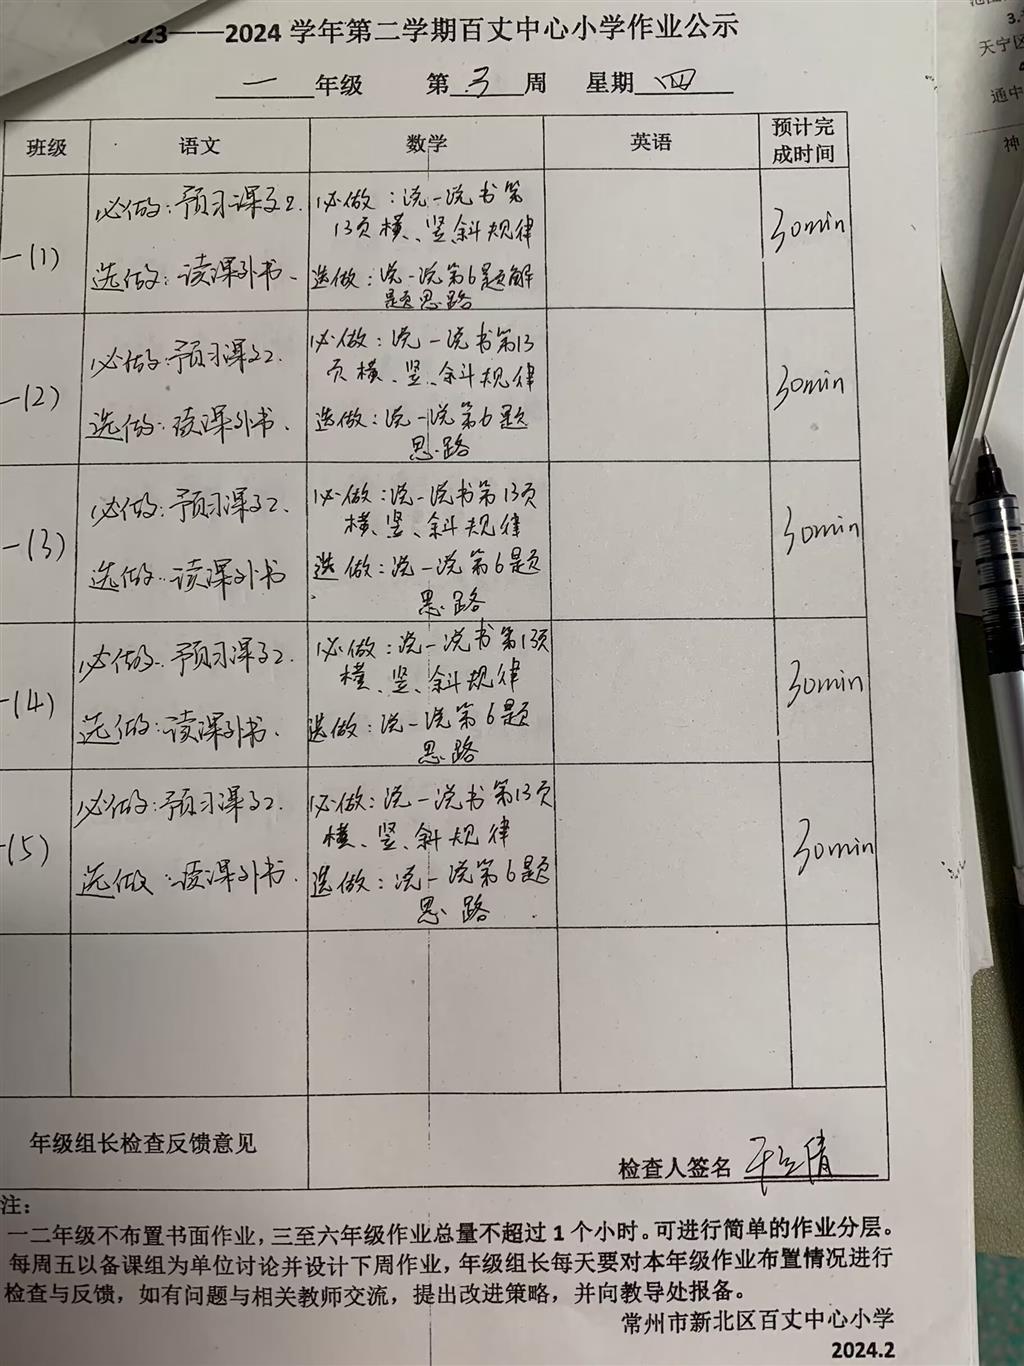 23——2024 学年第二学期百丈中心小学作业公示
一 年级 第 3 周 星期 四
班级 语文 数学 英语 预计完
成时间
一(1)
必做:预习课文2.
选做:读课外书.
必做:说一说书第
13页横、竖、斜规律
选做:说一说第6题解
题思路
30min
一(2)
必做:预习课文2.
选做:读课外书.
必做:说一说书第13
页横、竖、斜规律
选做:说一说第6题
思路
30min
一(3)
必做:预习课文2.
选做:读课外书
必做:说一说书第13页
横、竖、斜规律
选做:说一说第6题
思路
30min
一(4)
必做:预习课文2.
选做:读课外书.
必做:说一说书第13页
横、竖、斜规律
选做:说一说第6题
思路
30min
(5)
必做:预习课文2.
选做:读课外书.
必做:说一说书第13页
横、竖、斜规律
选做:说一说第6题
思路
30min
年级组长检查反馈意见
检查人签名
注:
一二年级不布置书面作业,三至六年级作业总量不超过 1 个小时。可进行简单的作业分层。
每周五以备课组为单位讨论并设计下周作业,年级组长每天要对本年级作业布置情况进行
检查与反馈,如有问题与相关教师交流,提出改进策略,并向教导处报备。
常州市新北区百丈中心小学
2024.2
3.
天宁区
通中
神